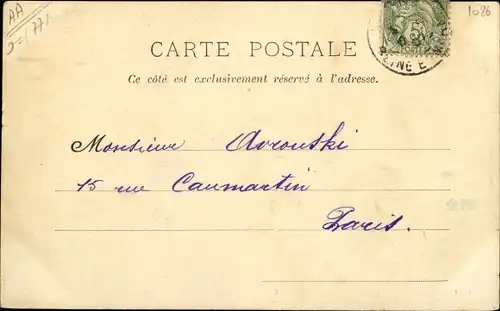 AA
1026
CARTE POSTALE
Ce côté est exclusivement réservé à l'adresse.
Monsieur Avronski
15 rue Caumartin
Paris.